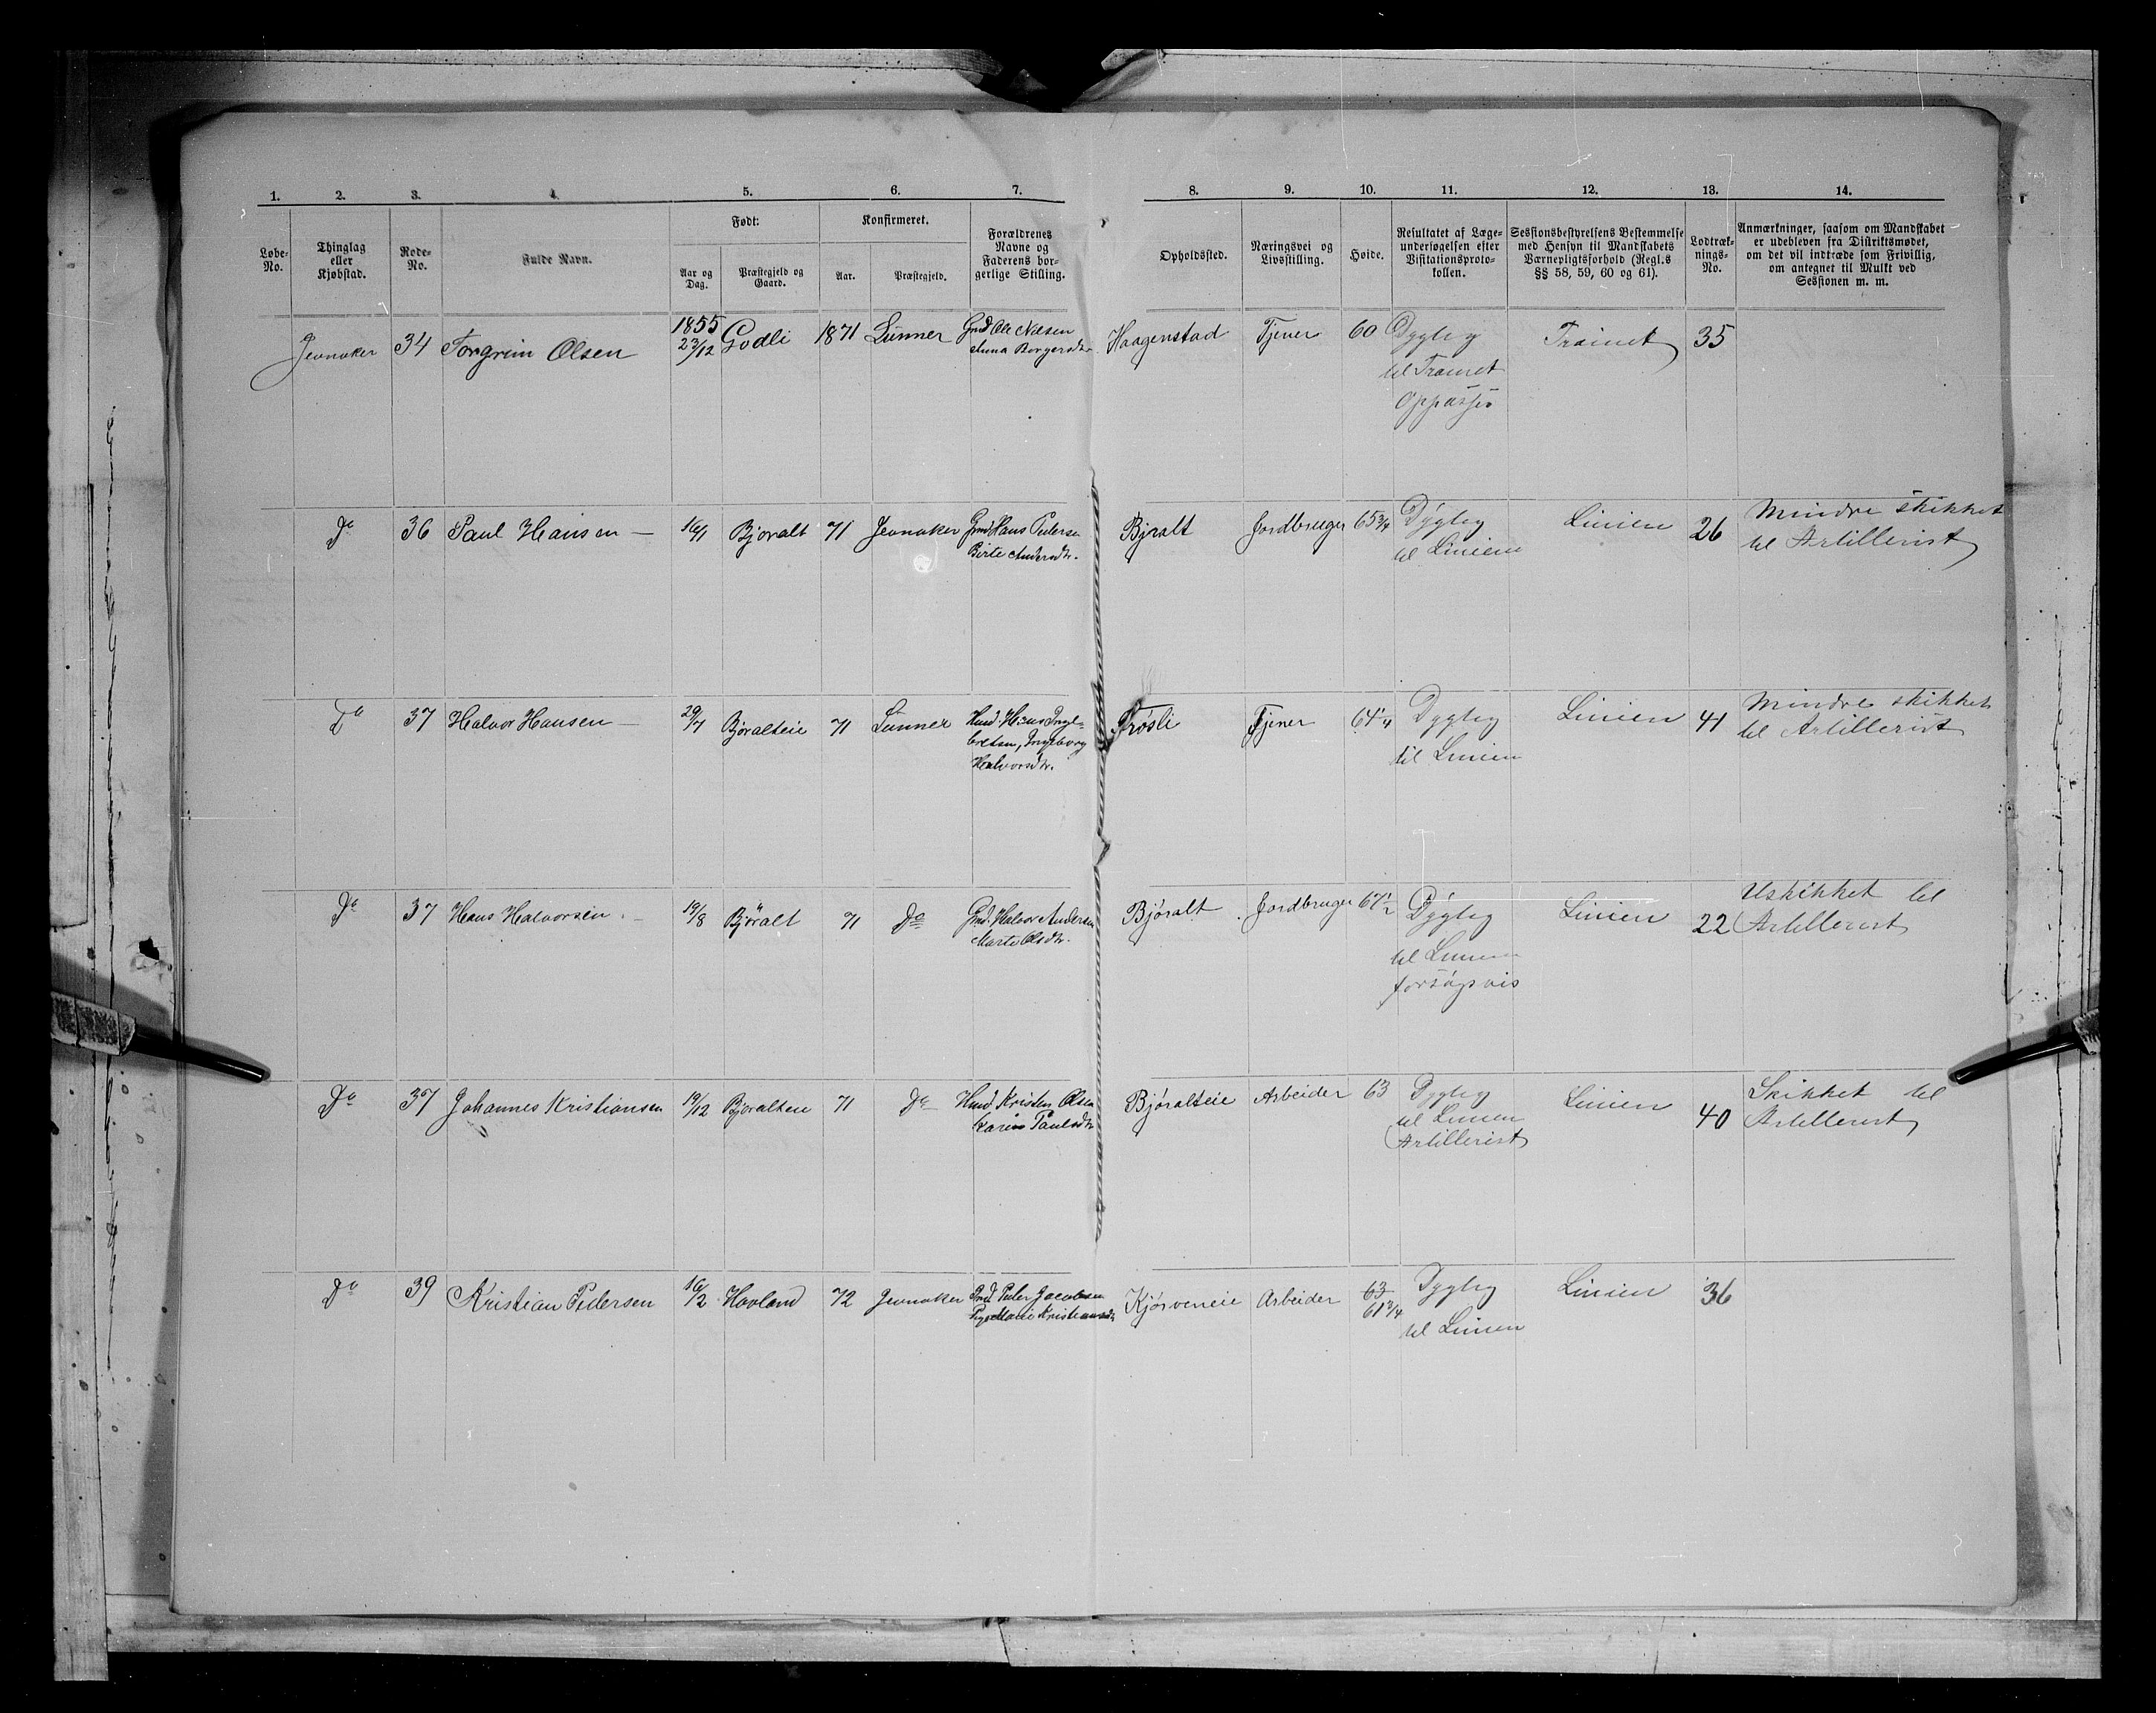 1. 2. 3. 4. 5. 6. 7. 8. 9. 10. 11. 12. 13. 14.
Løbe-No.
Thinglag eller Kjøbstad.
Rode-No.
Fulde Navn.
Født:
Aar og Dag.
Præstegjeld og Gaard.
Konfirmeret.
Aar.
Præstegjeld.
Forældrenes Navne og Faderens borgerlige Stilling.
Opholdssted.
Næringsvei og Livsstilling.
Høide.
Resultatet af Lægeundersøgelsen efter Visitationsprotokollen.
Sessionsbestyrelsens Bestemmelse med Hensyn til Mandskabets Værnepligtsforhold (Regl.s §§ 58, 59, 60 og 61).
Lodtræknings-No.
Anmærkninger, saasom om Mandskabet er udebleven fra Distriktsmødet, om det vil indtræde som Frivillig, om antegnet til Mulkt ved Sessionen m. m.
Jevnaker 34 Torgrim Olsen 1855 23/12 Godli 1871 Lunner Gmd Ole Nilsen Anna Borgersdtr. Haagenstad Tjener 60 Dygtig til Trainet Oppasser Trainet 35
Do 36 Paul Hansen — 16/1 Bjøralt 71 Jevnaker Gmd Hans Pedersen Birte Andersdtr. Bjøralt Jordbruger 65 3/4 Dygtig til Linien Linien 26 Mindre skikket til Artillerist
Do 37 Halvor Hansen — 29/7 Bjøralteie 71 Lunner Hmd. Hans Ingebretsen, Ingeborg Halvorsdtr. Trøsli Tjener 64 1/4 Dygtig til Linien Linien 41 Mindre skikket til Artillerist
Do 37 Hans Halvorsen 19/8 Bjøralt 71 Do Gmd. Halvor Andersen Marte Olsdtr. Bjøralt Jordbruger 67 1/2 Dygtig til Linien forsøgsvis Linien 22 Uskikket til Artillerist
Do 37 Johannes Kristiansen 19/12 Bjøralteie 71 Do Hmd. Kristen Olsen Karin Paulsdtr Bjøralteie Arbeider 63 Dygtig til Linien Artillerist Linien 40 Skikket til Artillerist
Do 39 Kristian Pedersen 16/2 Hovland 72 Jevnaker Peder Jacobsen Marie Kristiansdtr Kjørveneie Arbeider 63 61 3/4 Dygtig til Linien Linien 36